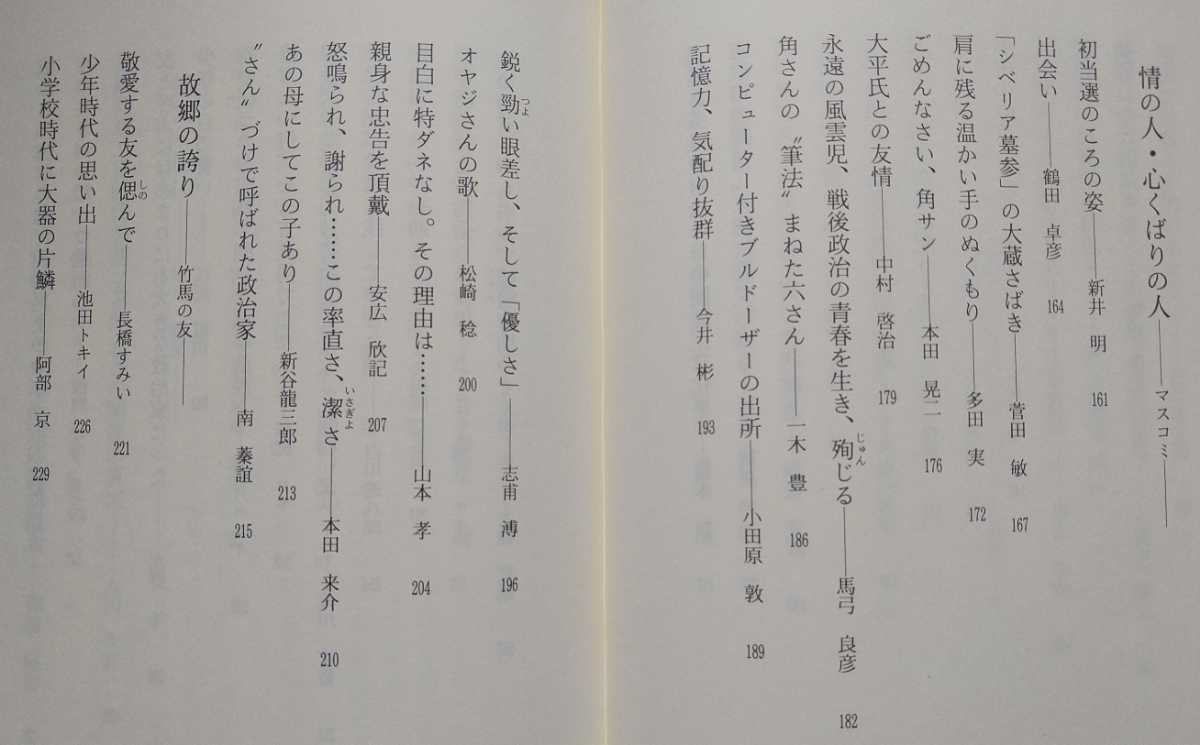 情の人・心くばりの人――マスコミ――
初当選のころの姿――新井 明 161
出会い――鶴田 卓彦 164
「シベリア墓参」の大蔵さばき――菅田 敏 167
肩に残る温かい手のぬくもり――多田 実 172
ごめんなさい、角サン――本田 晃二 176
大平氏との友情――中村 啓治 179
永遠の風雲児、戦後政治の青春を生き、殉じる――馬弓 良彦 182
角さんの〝筆法〟まねた六さん――一木 豊 186
コンピューター付きブルドーザーの出所――小田原 敦 189
記憶力、気配り抜群――今井 彬 193
鋭く勁い眼差し、そして「優しさ」――志甫 溥 196
オヤジさんの歌――松崎 稔 200
目白に特ダネなし。その理由は……――山本 孝 204
親身な忠告を頂戴――安広 欣記 207
怒鳴られ、謝られ……この率直さ、潔さ――本田 来介 210
あの母にしてこの子あり――新谷龍三郎 213
〝さん〟づけで呼ばれた政治家――南 蓁誼 215
故郷の誇り――竹馬の友――
敬愛する友を偲んで――長橋すみい 221
少年時代の思い出――池田トキイ 226
小学校時代に大器の片鱗――阿部 京 229